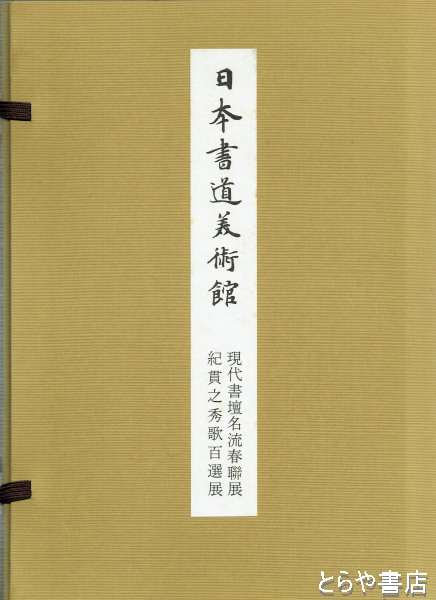 日本書道美術館
現代書壇名流春聯展
紀貫之秀歌百選展
とらや書店